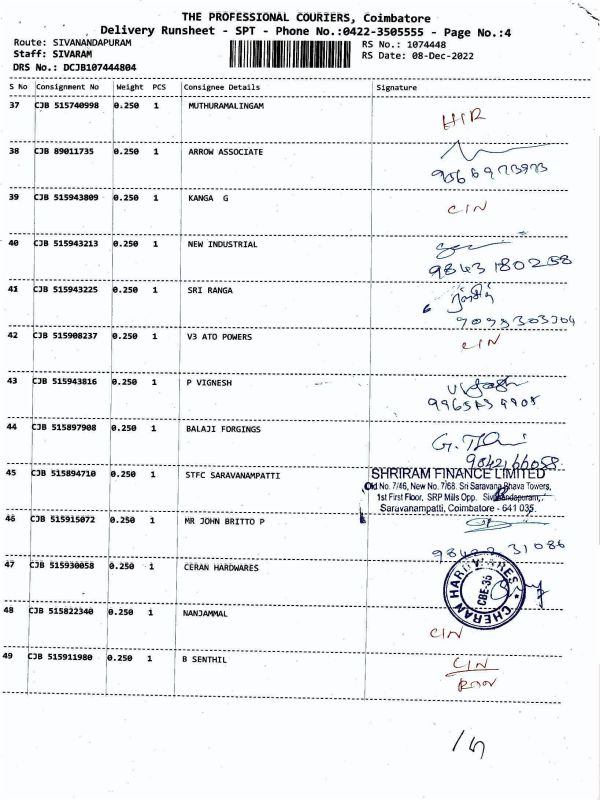 THE PROFESSIONAL COURIERS, Coimbatore
Delivery Runsheet - SPT - Phone No.:0422-3505555 - Page No.:4
Route: SIVANANDAPURAM
RS No.: 1074448
Staff: SIVARAM
RS Date: 08-Dec-2022
DRS No.: DCJB107444804
S No Consignment No Weight PCS Consignee Details Signature
37 CJB 515740998 0.250 1 MUTHURAMALINGAM
38 CJB 89011735 0.250 1 ARROW ASSOCIATE
39 CJB 515943809 0.250 1 KANGA G CIN
40 CJB 515943213 0.250 1 NEW INDUSTRIAL
9843180258
41 CJB 515943225 0.250 1 SRI RANGA
42 CJB 515908237 0.250 1 V3 ATO POWERS CIN
43 CJB 515943816 0.250 1 P VIGNESH
44 CJB 515897908 0.250 1 BALAJI FORGINGS
9842166058
45 CJB 515894710 0.250 1 STFC SARAVANAMPATTI
SHRIRAM FINANCE LIMITED
Old No. 7/46, New No. 7/68. Sri Saravana Bhava Towers,
1st First Floor, SRP Mills Opp. Sivanandapuram,
Saravanampatti, Coimbatore - 641 035.
46 CJB 515915072 0.250 1 MR JOHN BRITTO P
47 CJB 515930058 0.250 1 CERAN HARDWARES
CHERAN HARDWARES
CBE-35
48 CJB 515822340 0.250 1 NANJAMMAL CIN
49 CJB 515911980 0.250 1 B SENTHIL CIN